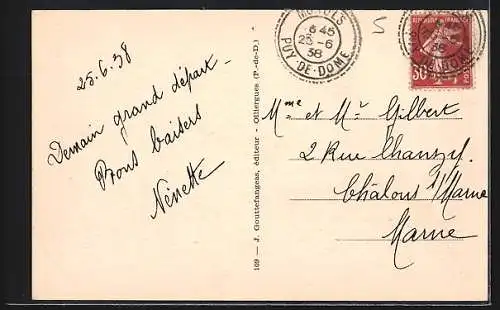 25.6.38
Demain grand départ -
Bons baisers
Nénette
109 — J. Gouttefangeas, éditeur - Olliergues (P.-de-D.)
6 45
25-6
38
PUY-DE-DOME
5
REPUBLIQUE FRANÇAISE
30
38
Mme et Mr Gilbert
2 Rue Chanzy.
Châlons s/Marne
Marne